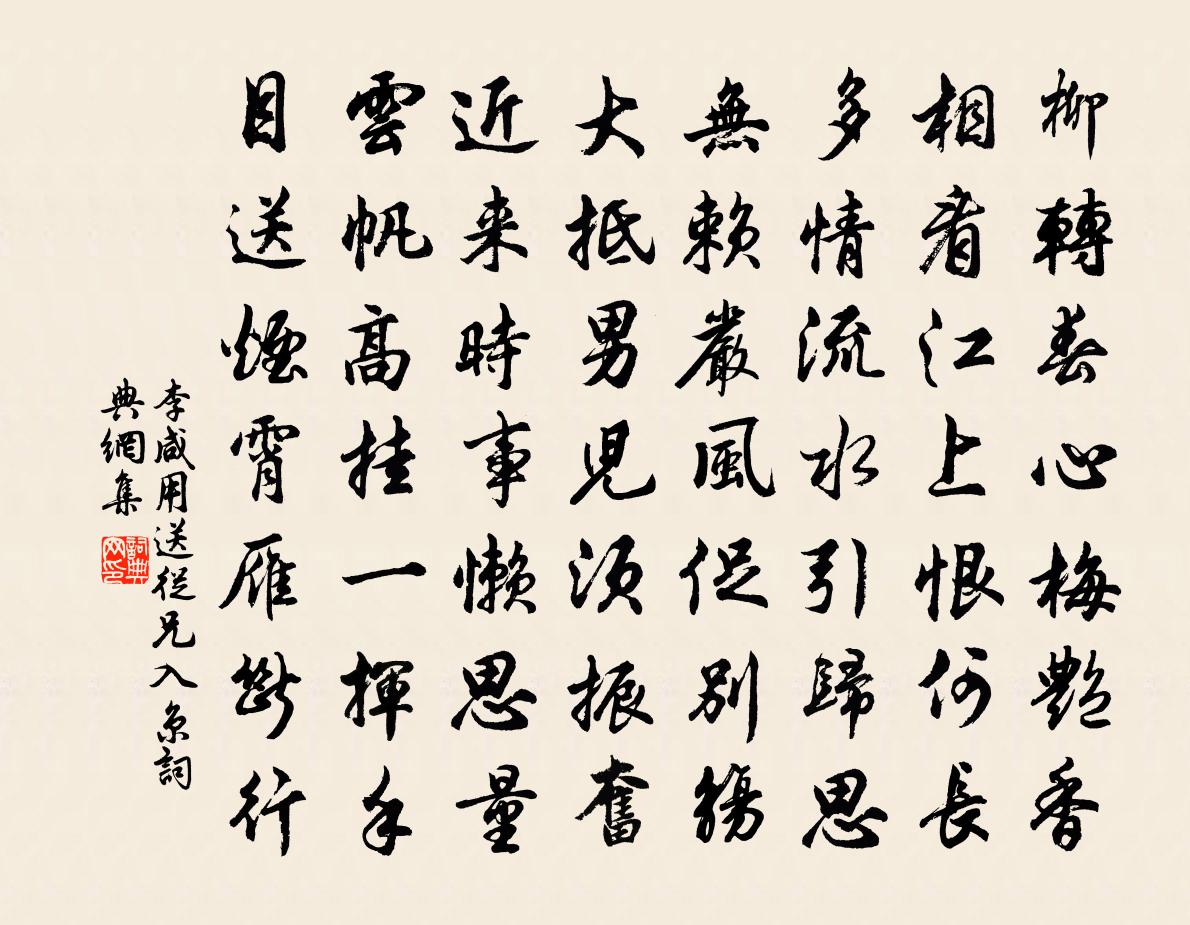 柳轉春心梅艷香
相看江上恨何長
多情流水引歸思
無賴嚴風促別觴
大抵男兒須振奮
近来時事懶思量
雲帆高挂一揮手
目送煙霄雁斷行
李咸用送從兄入京詞
典網集
詞典
网印